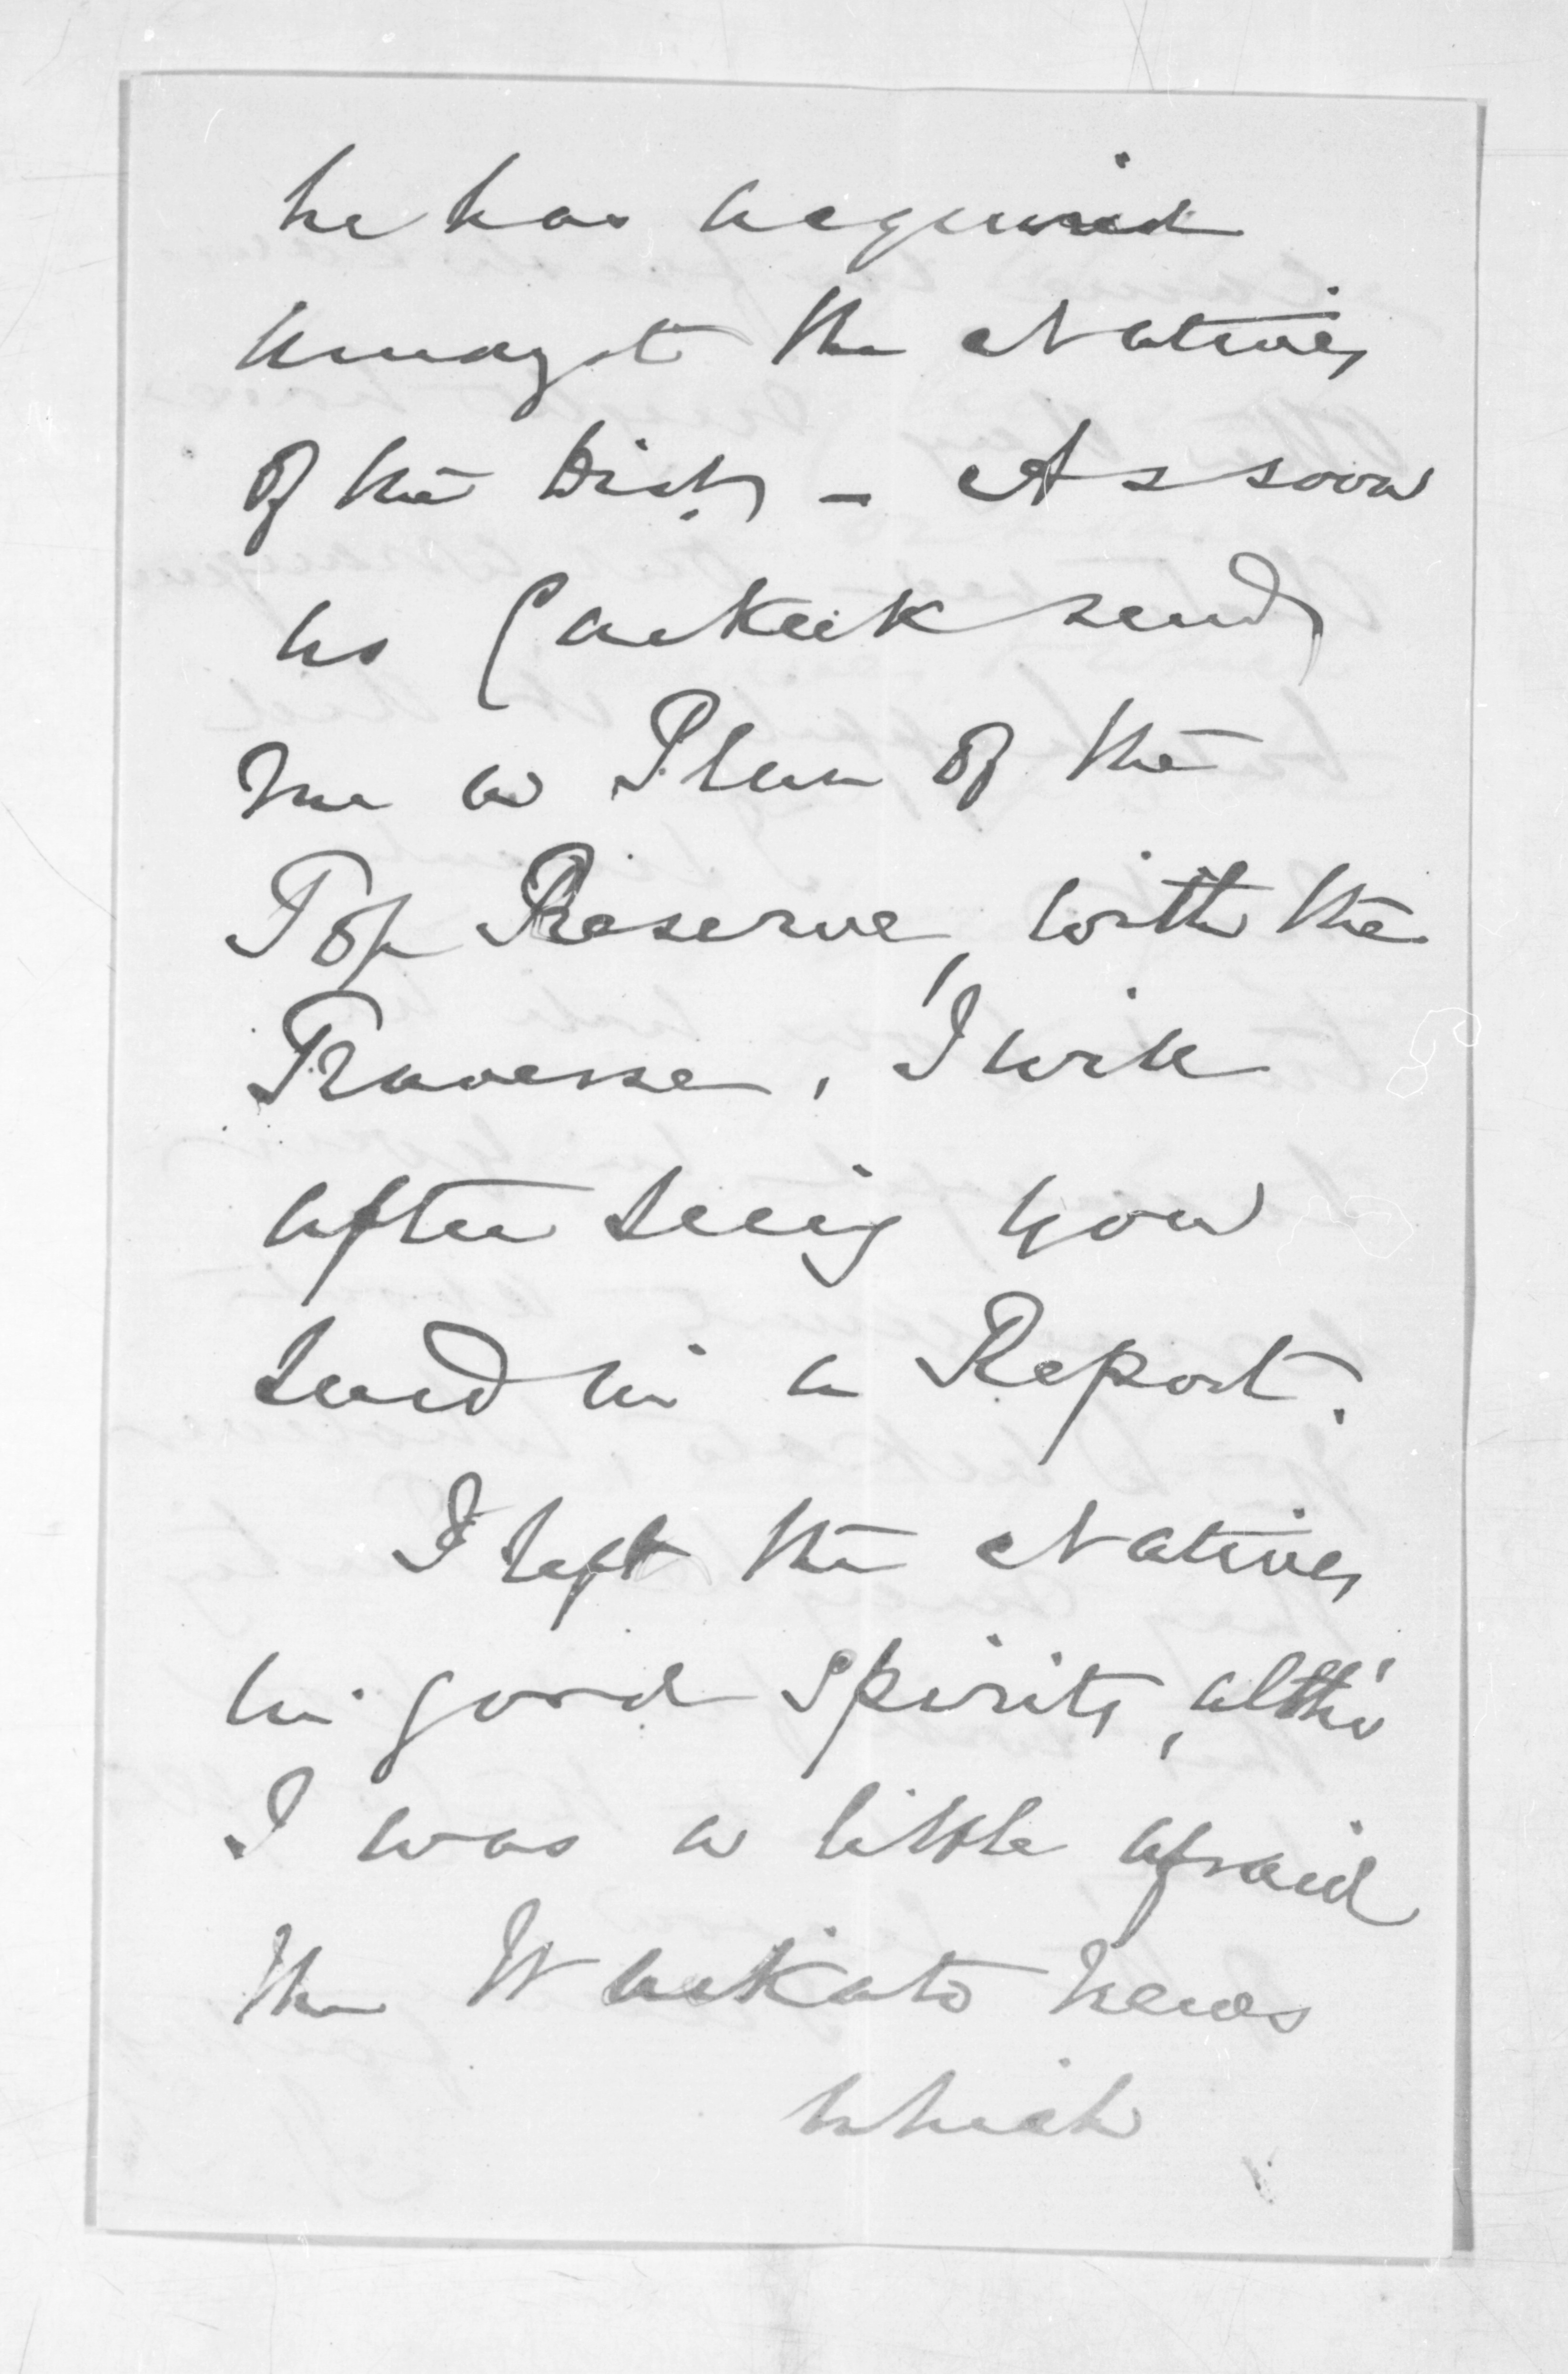 he has acquired
amongst the Natives
of the Dist. - As soon
as Carkeek sends
me a Plan of the
Top Reserve, with the
Traverse, I will
after seeing you
send in a Report.
I left the Natives
in good spirits, altho'
I was a little afraid
the Waikato news
which